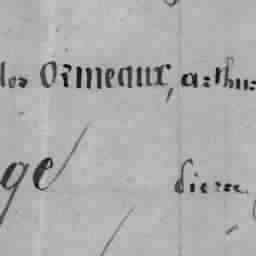 des Ormeaux, arthur
ge dieu